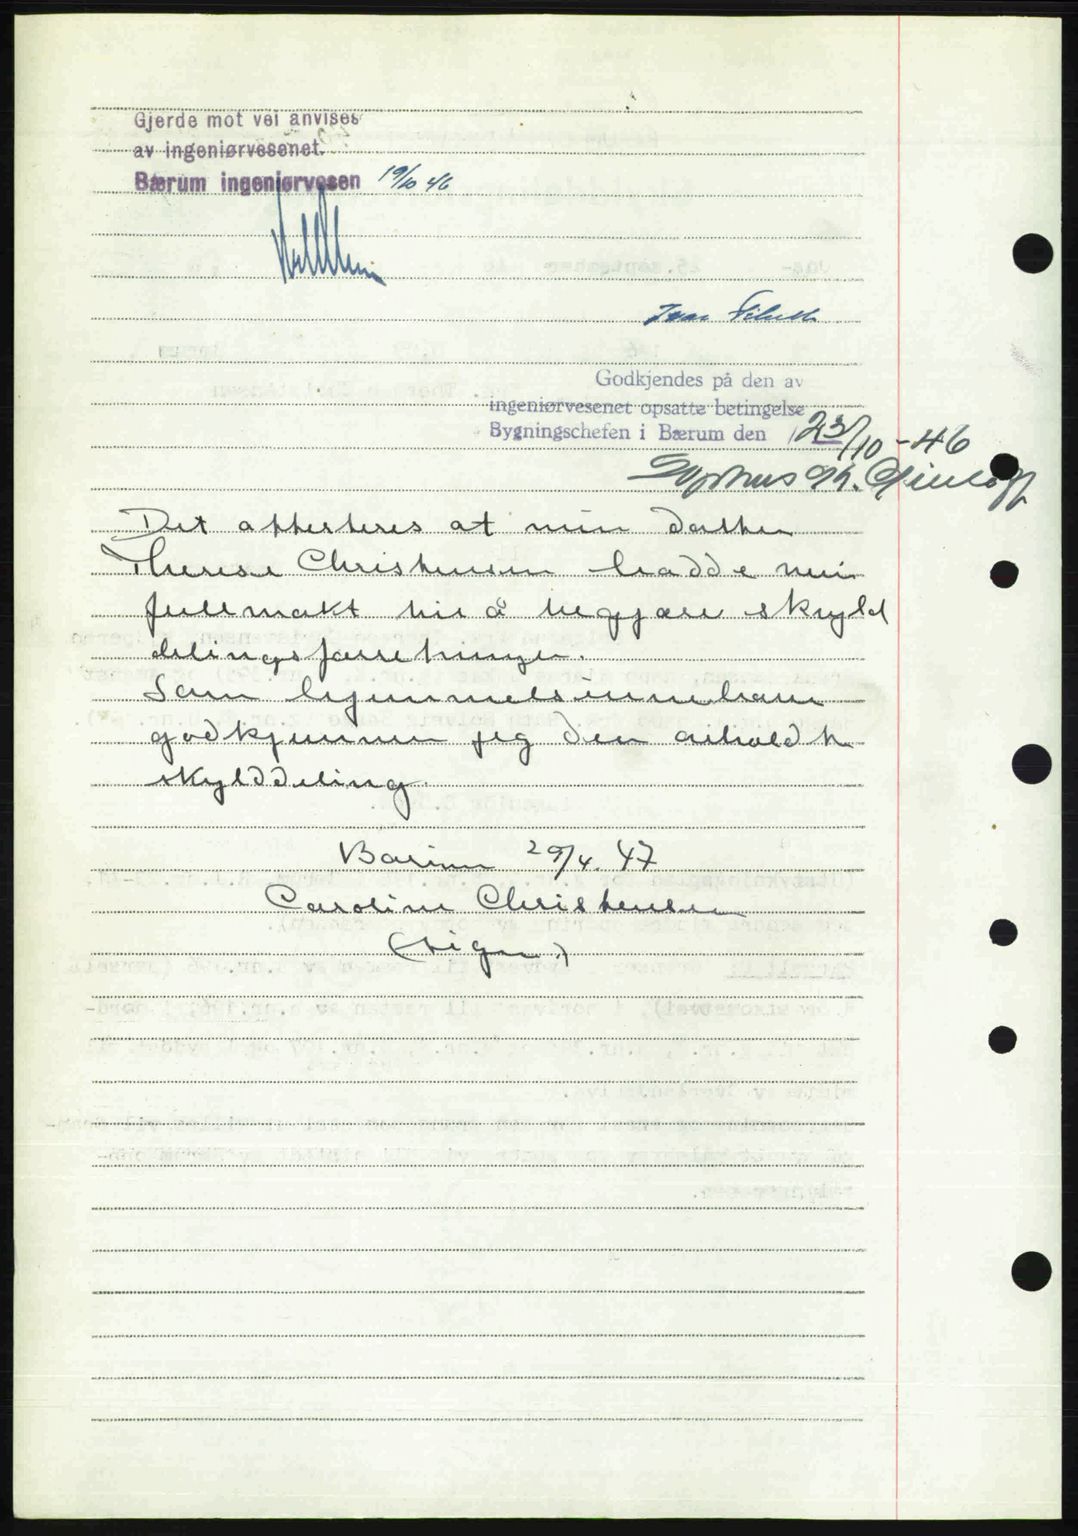 Gjerde mot vei anvises
av ingeniørvesenet.
Bærum ingeniørvesen 19/10 46
Godkjendes på den av
ingeniørvesenet opsatte betingelse
Bygningschefen i Bærum den 23/10-46
Det attesteres at min datter
Therese Christensen hadde min
fullmakt til å begjære skyld
delingsforretningen.
Som hjemmelsinnehaver
godkjenner jeg den avholdte
skylddeling.
Bærum 29/4. 47
Caroline Christensen
(sign.)